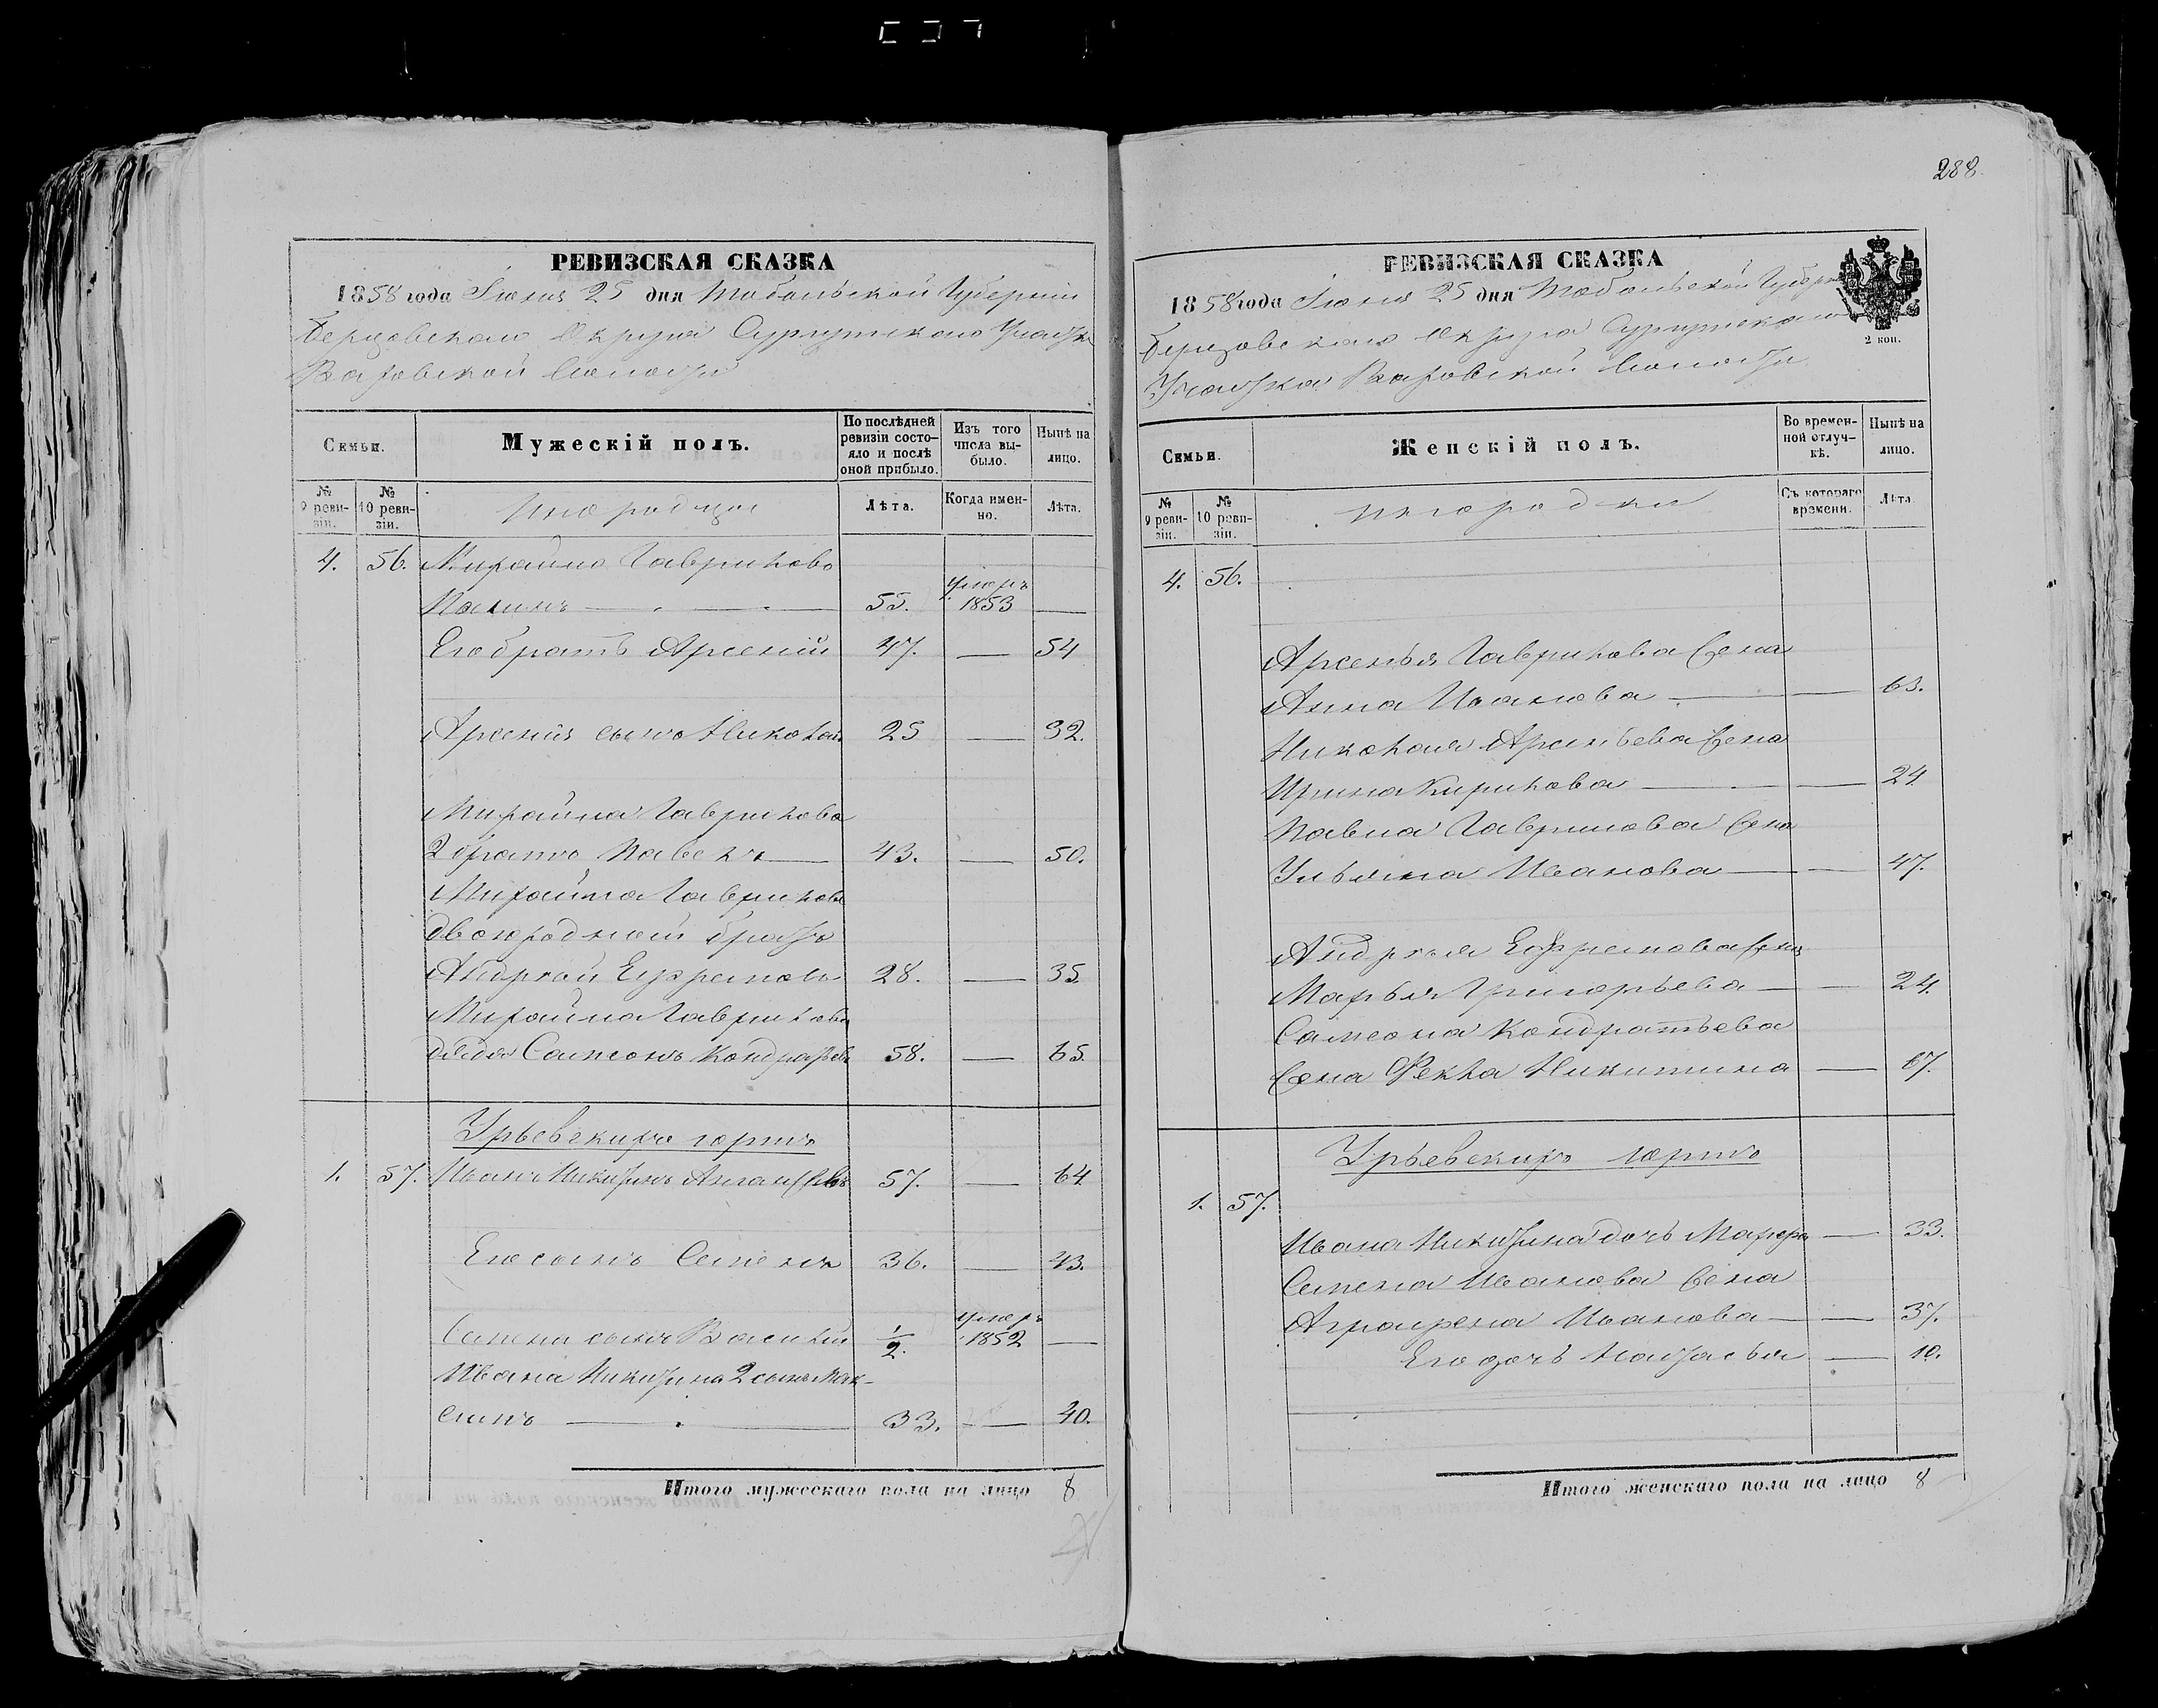 288
РЕВИЗСКАЯ СКАЗКА
1858 года Іюня 25 дня Тобольской Губерніи
Березовскаго Округа Сургутскаго Участка
Ваховской Волости
Семьи.
Мужескій полъ.
По послѣдней ревизіи состояло и послѣ оной прибыло.
Изъ того числа выбыло.
Нынѣ на лицо.
№ 9 ревизіи.
№ 10 ревизіи.
Инородцы
Лѣта.
Когда именно.
Лѣта.
4. 56. Михайло Гаврилово
55. умеръ 1853 —
Его братъ Арсеній 47. — 54
Арсенія сынъ Николай 25 — 32.
Михайла Гаврилова
2 братъ Павелъ — 43. — 50.
Михайла Гаврилова
двоюродный братъ
Андрей Ефремовъ 28. — 35.
Михайла Гаврилова
дядя Самсонъ Кондратьевъ 58. — 65.
Урьевскихъ юртъ
1. 57. Иванъ Никитинъ 57. — 64.
Его сынъ Семенъ 36. — 43.
Семена сынъ Василій 1/2. умеръ 1852 —
Ивана Никитина 2 сынъ Мак-
симъ — 33. — 40.
Итого мужескаго пола на лицо 8
РЕВИЗСКАЯ СКАЗКА
1858 года Іюня 25 дня Тобольской Губерніи
2 коп.
Березовскаго Округа Сургутскаго
Участка Ваховской Волости
Семьи.
Женскій полъ.
Во временной отлучкѣ.
Нынѣ на лицо.
№ 9 ревизіи.
№ 10 ревизіи.
инородки
Съ котораго времени.
Лѣта.
4. 56.
Арсенья Гаврилова жена
Анна Иванова — — 63.
Николая Арсеньева жена
Ирина Кирилова — — 24.
Павла Гаврилова жена
Ульяна Иванова — — 47.
Андрея Ефремова жена
Марья Григорьева — — 24.
Самсона Кондратьева
жена Фекла Никитина — 67.
Урьевскихъ юртъ
1. 57.
Ивана Никитина дочь Марфа — 33.
Семена Иванова жена
Аграфена Иванова — — 37.
Его дочь Настасья — 10.
Итого женскаго пола на лицо 8